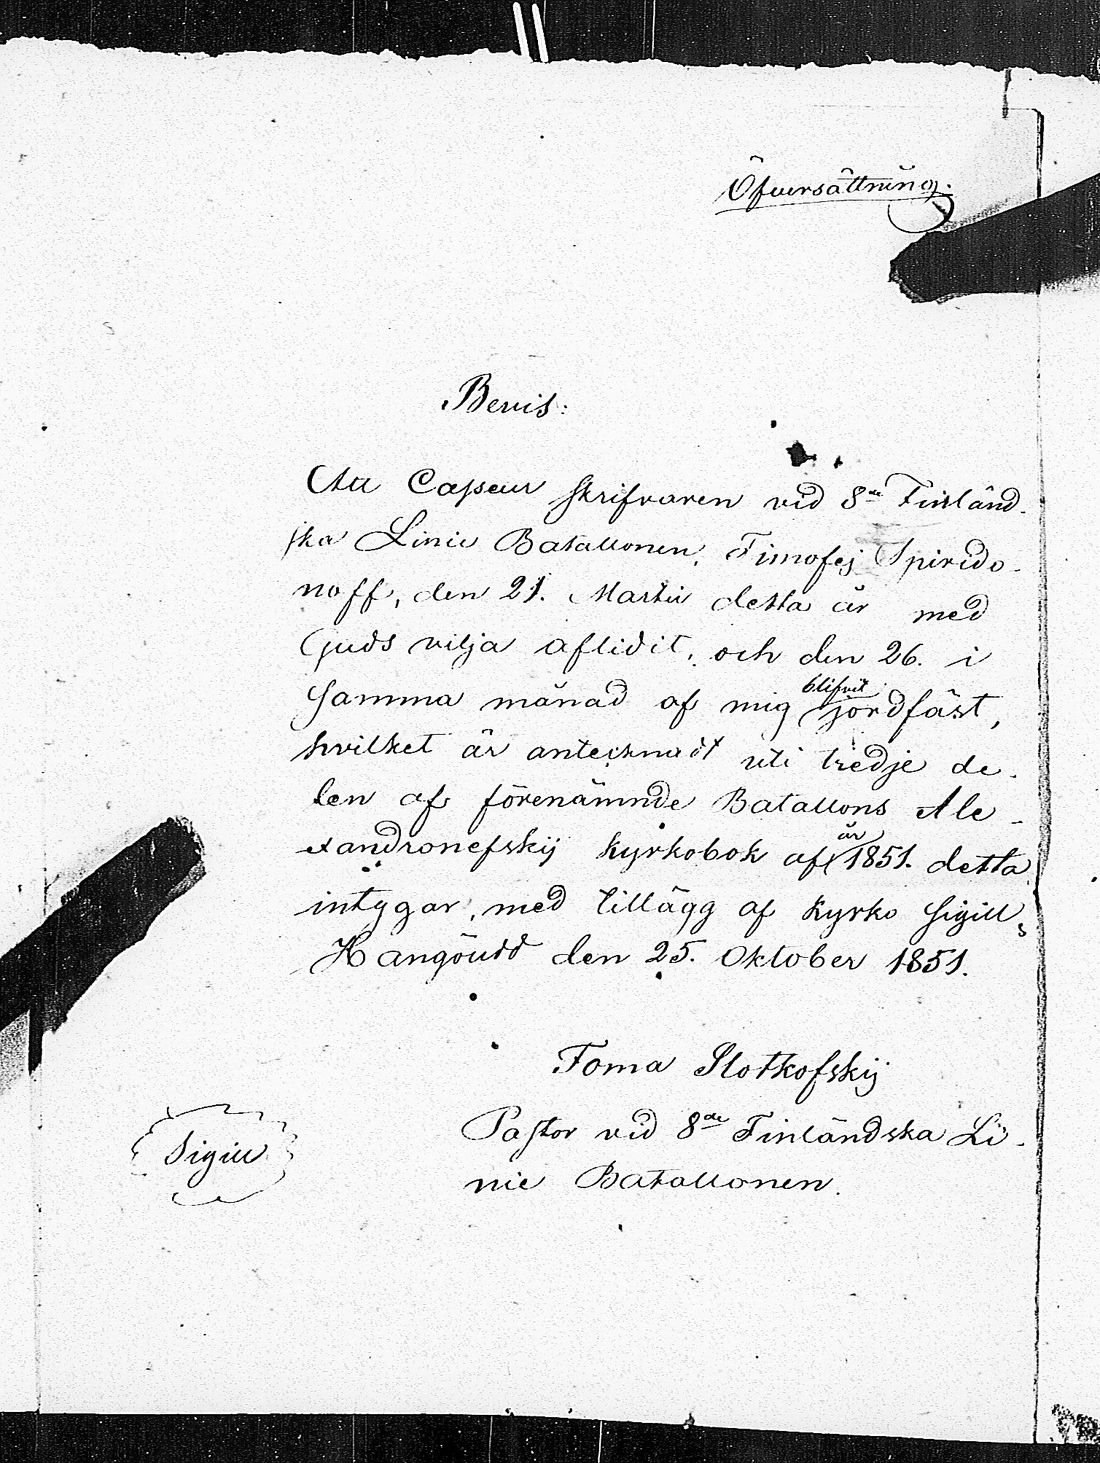 Öfversättning.
Bevis:
Att Capeur skrifvaren vid 8de Finländ-
ska Linie Bataillonen, Timofej Spirido-
noff, den 21. Martii detta år med
Guds vilja aflidit, och den 26. i
samma månad af mig blifvit jordfäst,
hvilket är antecknadt uti tredje de-
len af förenämnde Bataillons Ale-
xandronefskij kyrkobok af år 1851. detta
intygar, med tillägg af Kyrko Sigill,
Hangöudd den 25. Oktober 1851.
Foma Slotkofskij
Pastor vid 8de Finländska Li-
nie Bataillonen.
Sigill